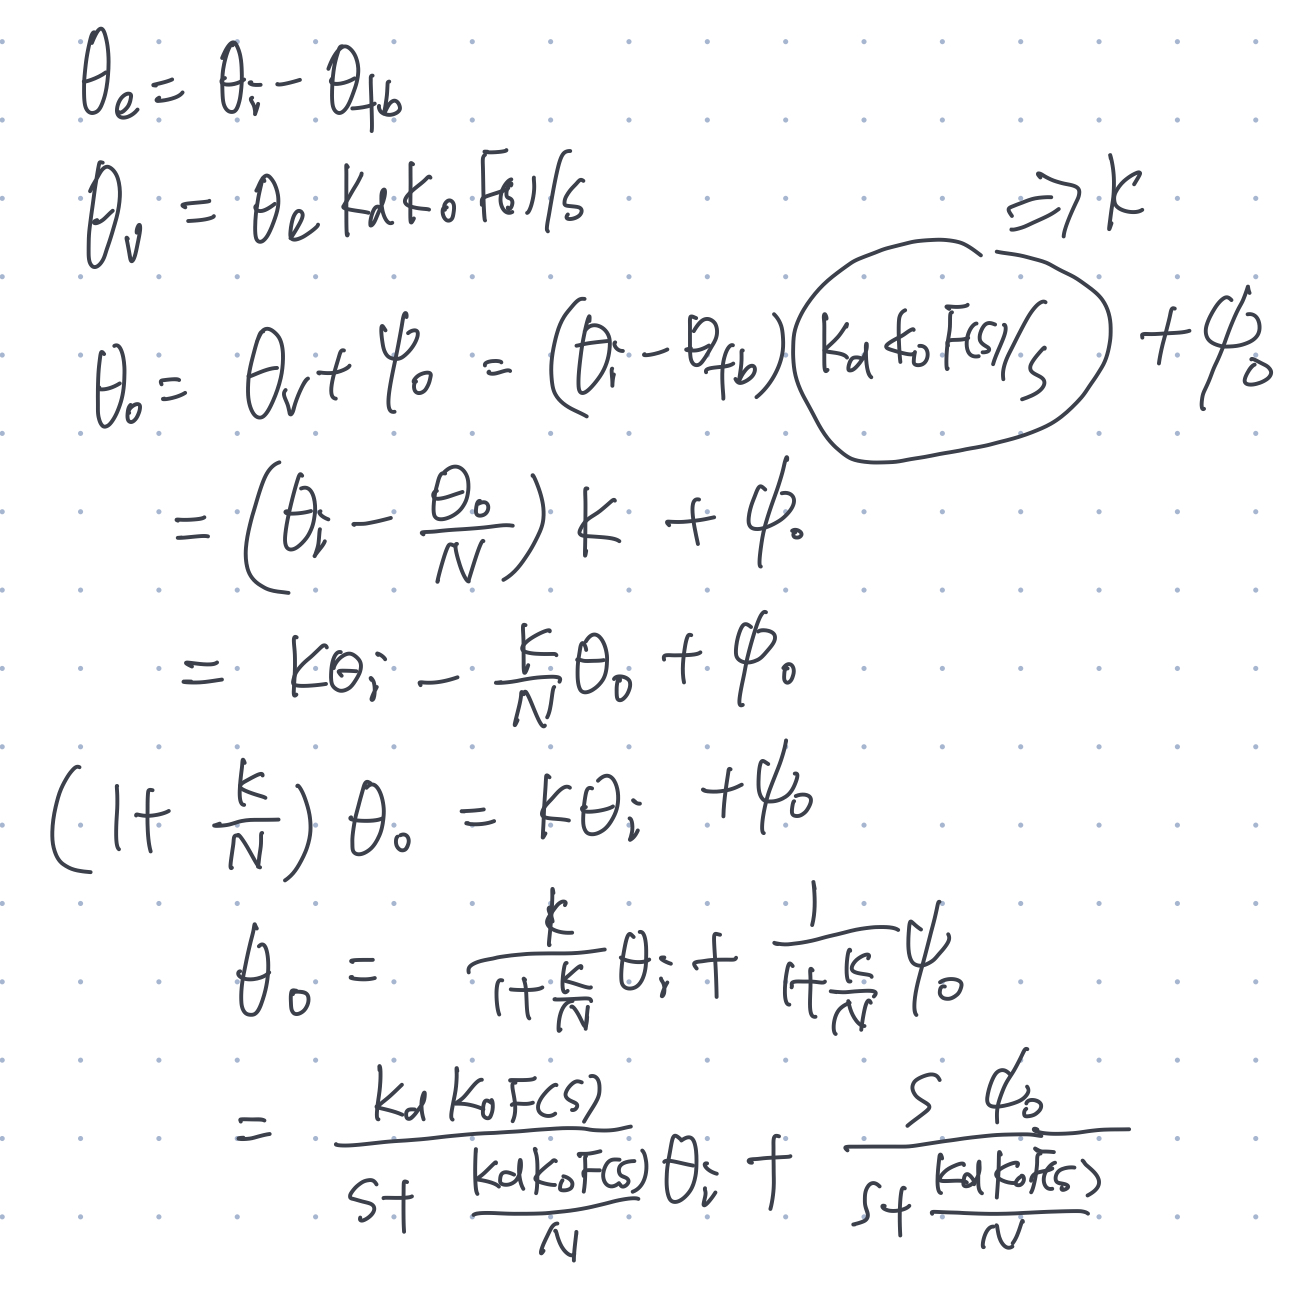 θe = θi - θfb
θv = θe Kd Ko F(s)/s
⇒ K
θo = θv + ψo = (θi - θfb) Kd Ko F(s)/s + ψo
= (θi - θo/N) K + ψo
= Kθi - K/N θo + ψo
(1 + K/N) θo = Kθi + ψo
θo = K/(1+K/N) θi + 1/(1+K/N) ψo
= Kd Ko F(s)/(s + Kd Ko F(s)/N) θi + s ψo/(s + Kd Ko F(s)/N)